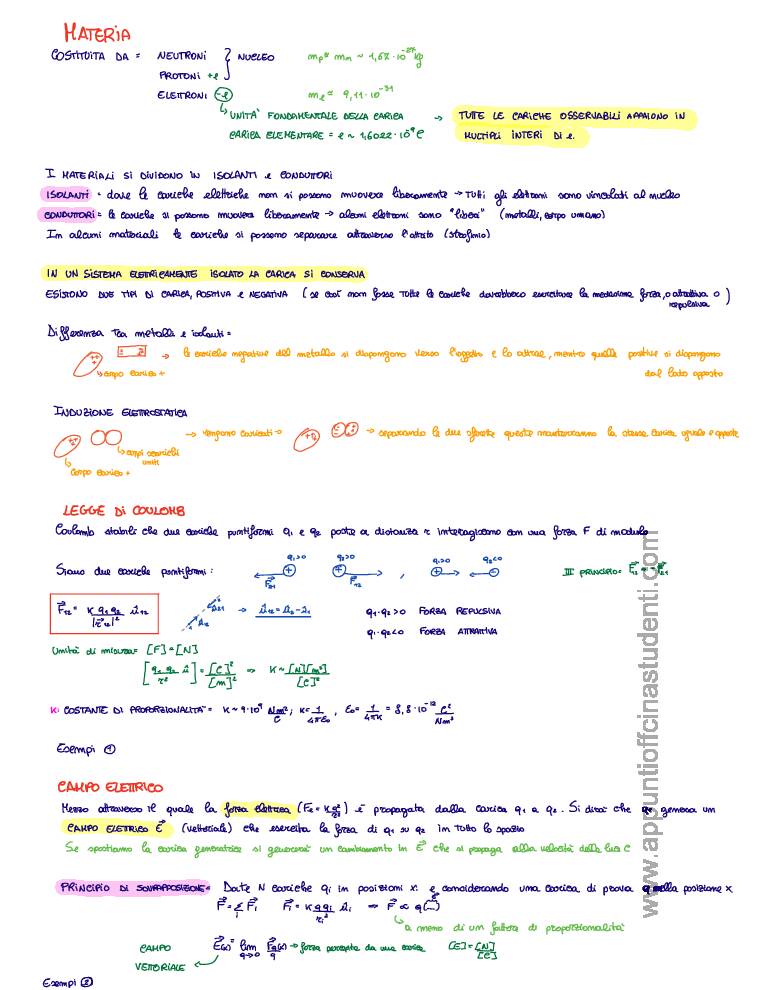 MATERIA
COSTITUITA DA = NEUTRONI } NUCLEO mp ≈ mn ~ 1,67·10⁻²⁷ kg
PROTONI +e
ELETTRONI -e me ≈ 9,11·10⁻³¹
↳ UNITA' FONDAMENTALE DELLA CARICA → TUTTE LE CARICHE OSSERVABILI APPAIONO IN
CARICA ELEMENTARE = e ~ 1,6022·10⁻¹⁹ C MULTIPLI INTERI DI e.
I MATERIALI SI DIVIDONO IN ISOLANTI e CONDUTTORI
ISOLANTI = dove le cariche elettriche non si possono muovere liberamente → Tutti gli elettroni sono vincolati al nucleo
CONDUTTORI = le cariche si possono muovere liberamente → alcuni elettroni sono "liberi" (metalli, corpo umano)
In alcuni materiali le cariche si possono separare attraverso l'attrito (strofinio)
IN UN SISTEMA ELETTRICAMENTE ISOLATO LA CARICA SI CONSERVA
ESISTONO DUE TIPI DI CARICA, POSITIVA e NEGATIVA (se così non fosse tutte le cariche dovrebbero esercitare la medesima forza, o attrattiva o repulsiva)
Differenza tra metalli e isolanti =
→ le cariche negative del metallo si dispongono verso l'oggetto e lo attrae, mentre quelle positive si dispongono
↳ corpo carico + dal lato opposto
INDUZIONE ELETTROSTATICA
→ vengono caricati → → separando le due sferette queste manterranno la stessa carica uguale e opposta
↳ corpi scarichi uniti
corpo carico +
LEGGE DI COULOMB
Coulomb stabilì che due cariche puntiformi q₁ e q₂ poste a distanza r interagiscono con una forza F di modulo
Siano due cariche puntiformi: q₁>0 q₂>0 , q₁>0 q₂<0 III PRINCIPIO = F₁₂ = -F₂₁
F₂₁ F₁₂
F₁₂ = K q₁q₂ / |r₁₂|² û₁₂ → û₁₂ = r₂ - r₁ q₁·q₂>0 FORZA REPULSIVA
q₁·q₂<0 FORZA ATTRATTIVA
Unità di misura = [F] = [N]
[q₁ q₂ / r² û] = [C]² / [m]² ⇒ K ~ [N][m²] / [C]²
K: COSTANTE DI PROPORZIONALITA' = K ~ 9·10⁹ Nm²/C ; K = 1/4πε₀ , ε₀ = 1/4πK = 8,8·10⁻¹² C²/Nm²
Esempi ①
CAMPO ELETTRICO
Mezzo attraverso il quale la forza elettrica (Fe = K q²/r²) è propagata dalla carica q₁ a q₂. Si dirà che q₁ genera un
CAMPO ELETTRICO E (vettoriale) che esercita la forza di q₁ su q₂ in tutto lo spazio
Se spostiamo la carica generatrice si genererà un cambiamento in E che si propaga alla velocità della luce c
PRINCIPIO DI SOVRAPPOSIZIONE = Date N cariche qi in posizioni xi e considerando una carica di prova q nella posizione x
F = Σi Fi Fi = K q qi / ri² ûi ⇒ F ∝ q(...)
↳ a meno di un fattore di proporzionalità
CAMPO VETTORIALE E(x) = lim q→0 Fq(x)/q → forza percepita da una carica [E] = [N]/[C]
Esempi ②
www.appuntiofficinastudenti.com